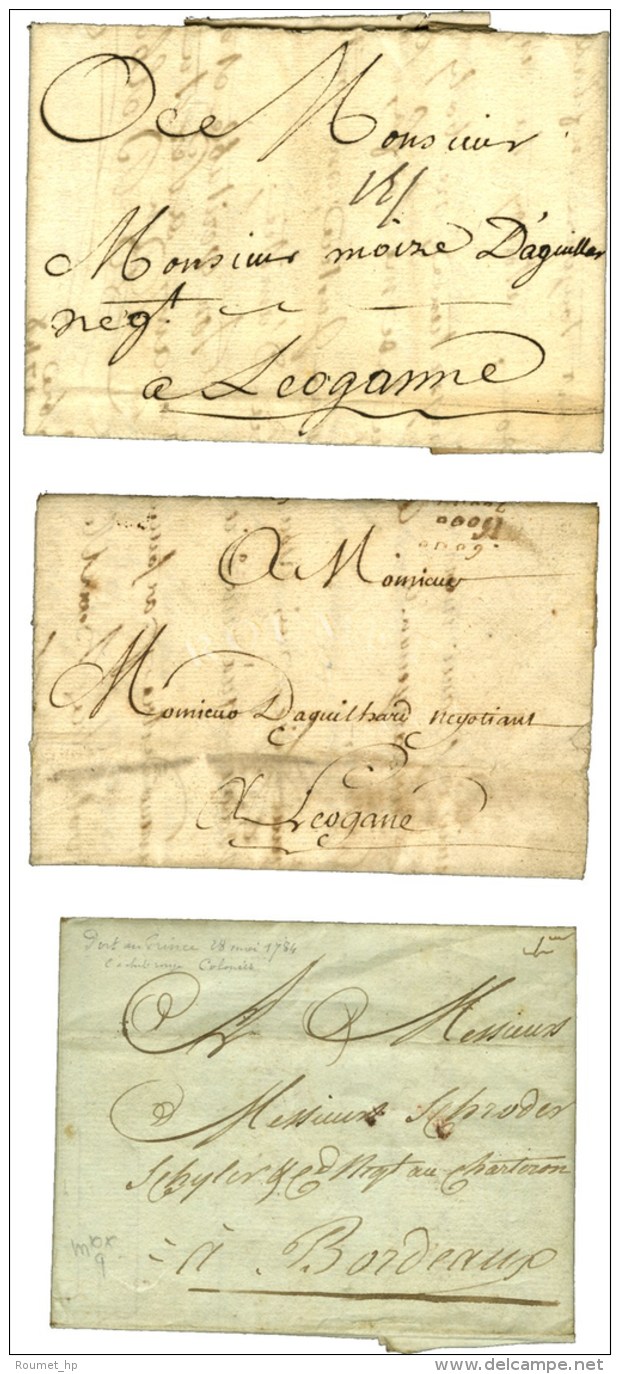 A Monsieur
Monsieur moize Daguillar
negt.
a Leoganne
A Monsieur
Monsieur Daguilhard negotiant
A Leogane
Port au Prince 28 mai 1784
Colonies
A Messieurs
Messieurs Schroder
Schyler & Co Negt au Chartron
à Bordeaux
Roumet_hp
www.delcampe.net